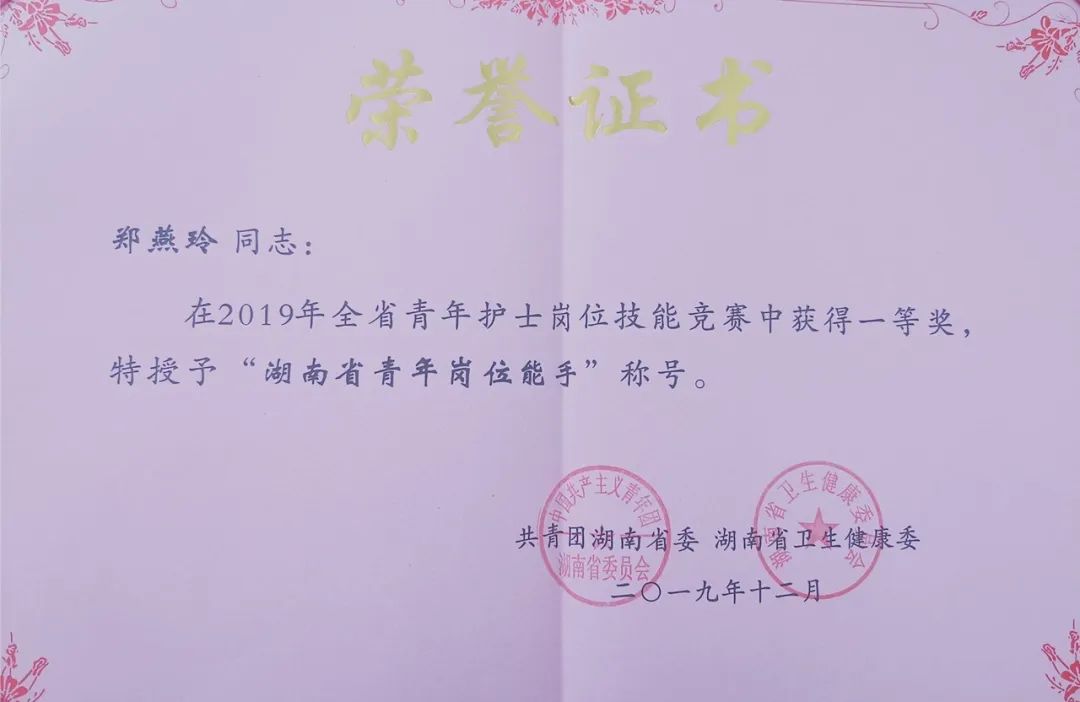 荣誉证书
郑燕玲 同志：
在2019年全省青年护士岗位技能竞赛中获得一等奖，
特授予“湖南省青年岗位能手”称号。
中国共产主义青年团
湖南省委员会
湖南省卫生健康委员会
共青团湖南省委 湖南省卫生健康委
二〇一九年十二月